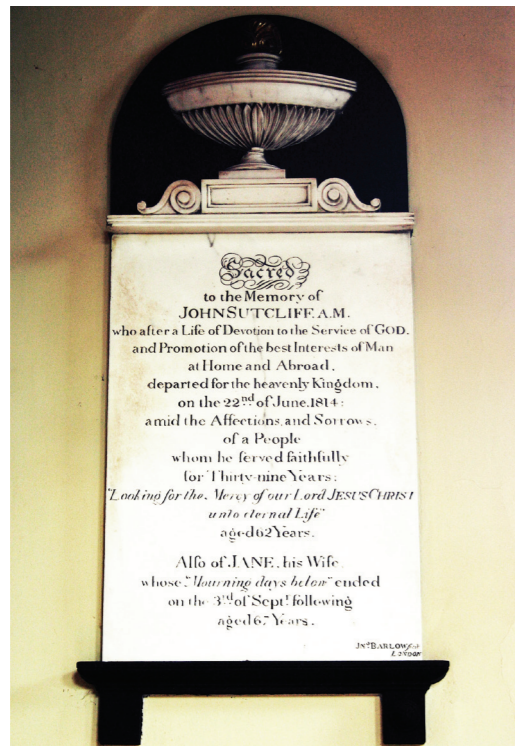 Sacred
to the Memory of
JOHN SUTCLIFF, A.M.
who after a Life of Devotion to the Service of GOD,
and Promotion of the best Interests of Man
at Home and Abroad,
departed for the heavenly Kingdom,
on the 22nd of June, 1814;
amid the Affections, and Sorrows,
of a People
whom he ſerved faithfully
for Thirty-nine Years;
"Looking for the Mercy of our Lord JESUS CHRIST
unto eternal Life"
aged 62 Years.
Alſo of JANE, his Wife,
whose "Mourning days below" ended
on the 3rd of Septr. following
aged Years.
Jno. BARLOW
LONDON